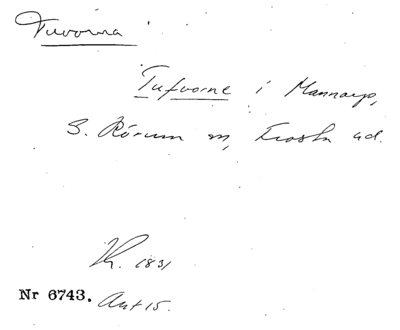 Tuvorna
Tufvorne i Mannarp,
S. Rörum sn, Frosta hd.
Kr. 1831
Nr 6743. Ant 15.